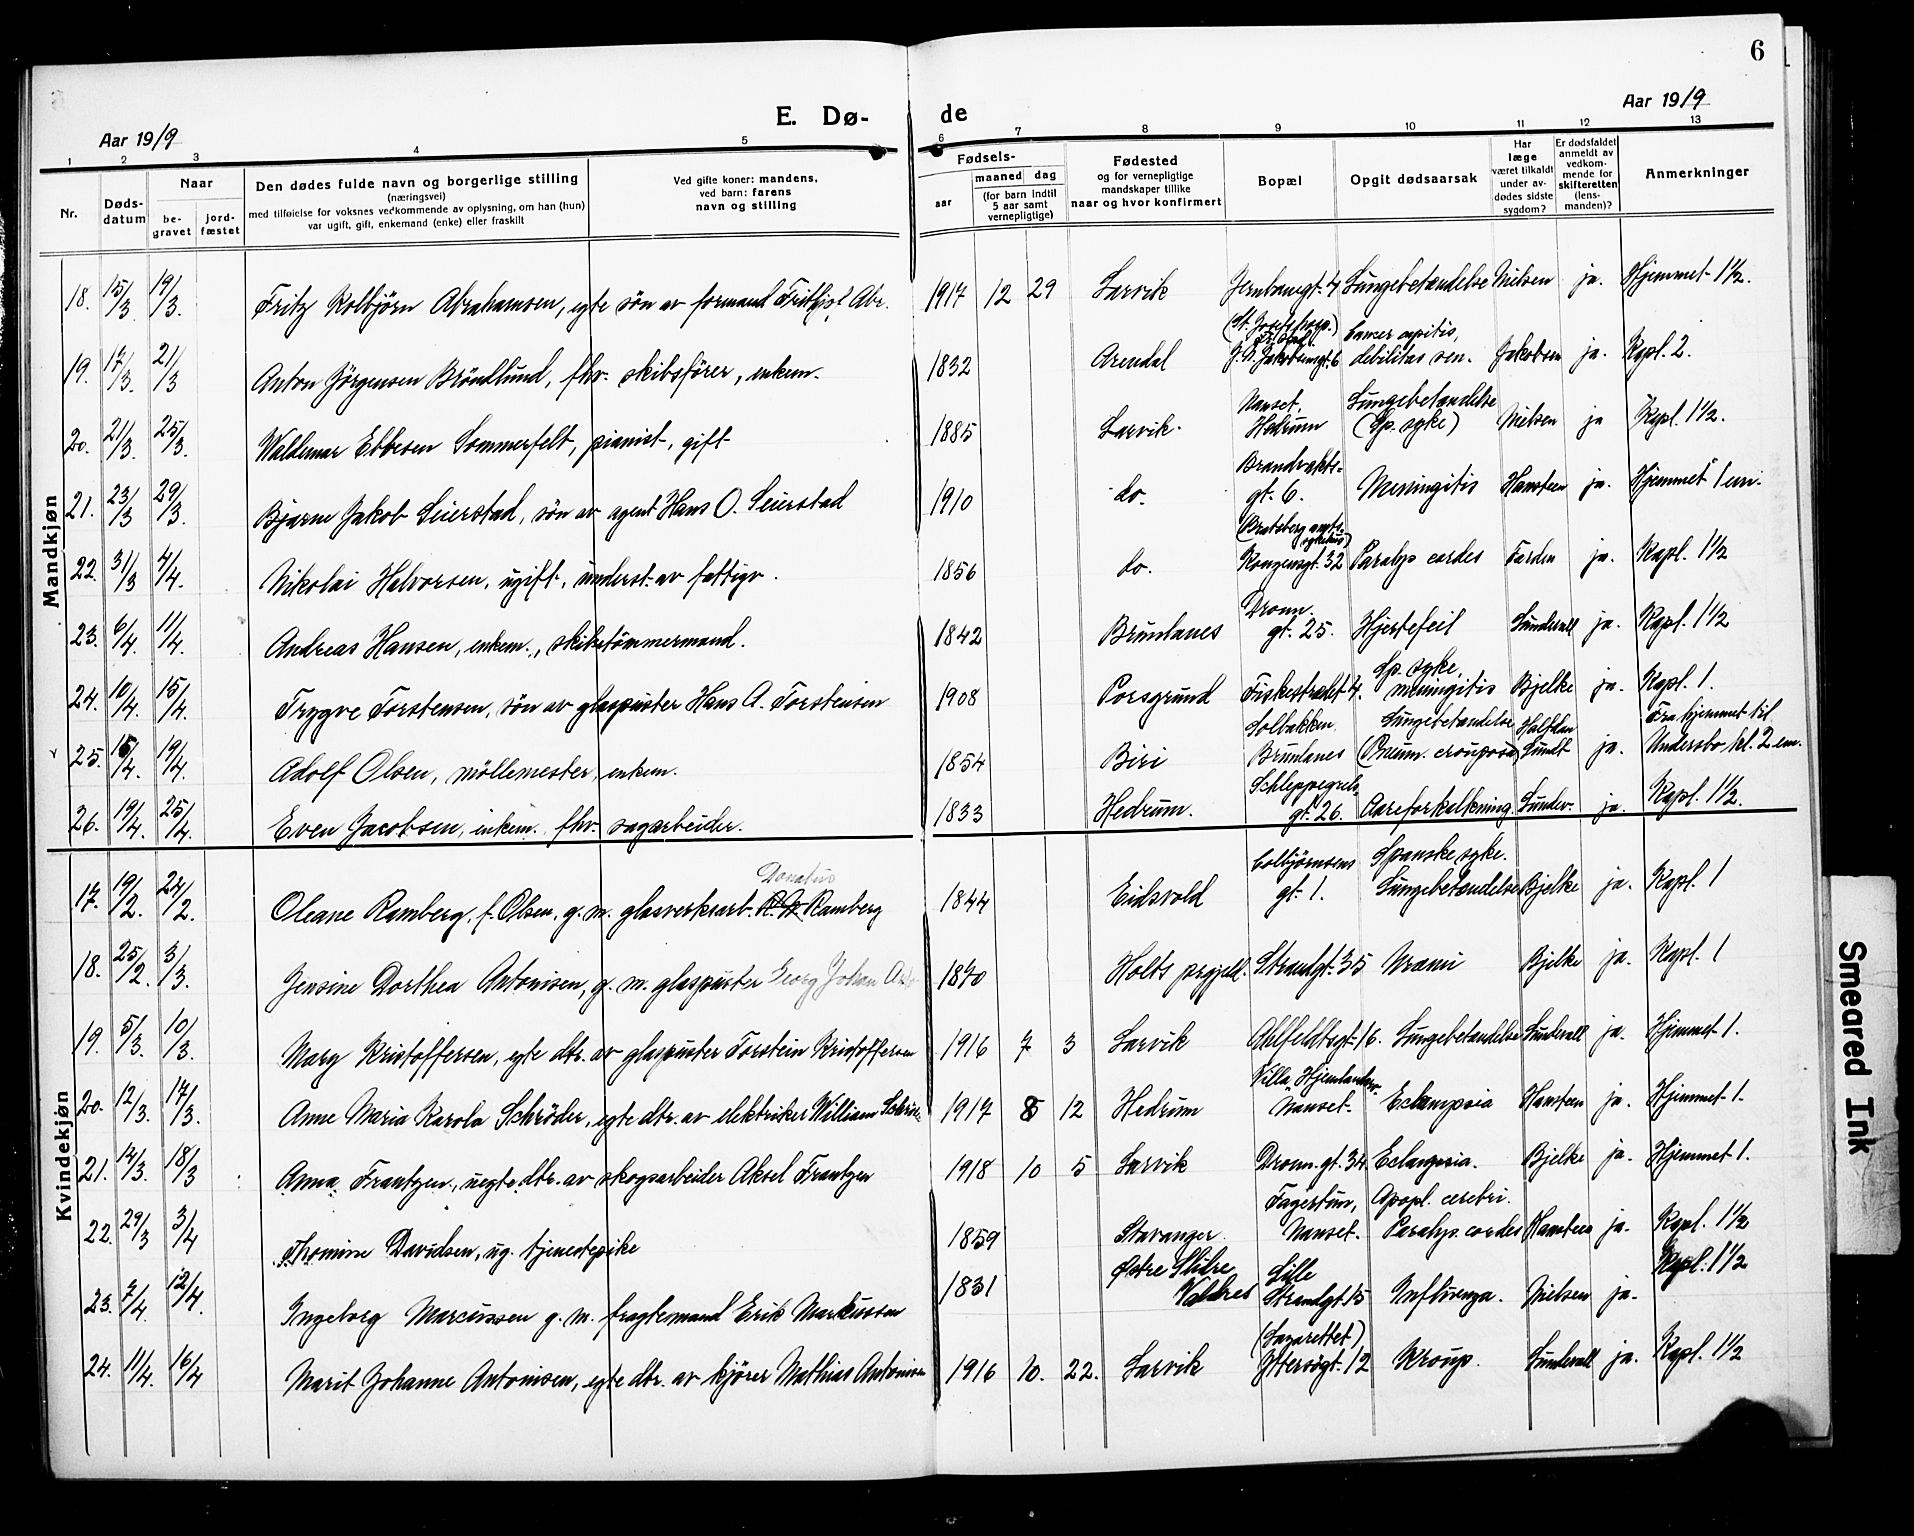 6
E. Dø- de
Aar 1919 Aar 1919
1 2 3 4 5 6 7 8 9 10 11 12 13
Nr. Døds-datum Naar be-gravet jord-fæstet Den dødes fulde navn og borgerlige stilling (næringsvei) med tilføielse for voksnes vedkommende av oplysning, om han (hun) var ugift, gift, enkemand (enke) eller fraskilt Ved gifte koner: mandens, ved barn: farens navn og stilling Fødsels- aar maaned dag (for barn indtil 5 aar samt vernepligtige) Fødested og for vernepligtige mandskaper tillike naar og hvor konfirmert Bopæl Opgit dødsaarsak Har læge været tilkaldt under av-dødes sidste sygdom? Er dødsfaldet anmeldt av vedkom-mende for skifteretten (lens-manden)? Anmerkninger
Mandkjøn
18. 15/3 19/3 Fritz Kolbjörn Abrahamsen, egte sön av formand Fritjof Abr. 1917 12 29 Larvik Jernbanegt. 4 Lungebetændelse Nielsen ja. Hjemmet 1 1/2.
19. 17/3 21/3 Anton Jörgensen Bröndlund, fhv. skibsförer, enkem. 1832 Arendal (St. Josefs hosp. Fr.stad) J. A. Jakobsensgt. 6 Cancer capitis, debilitas sen. Jakobsen ja. Kapl. 2.
20. 21/3 25/3 Waldemar Ebbesen Sommerfelt, pianist, gift 1885 Larvik. Nanset, Hedrum Lungebetændelse (Sp. syke) Nielsen ja Kapl. 1 1/2.
21. 23/3 29/3 Bjarne Jakob Seierstad, sön av agent Hans O. Seierstad 1910 do. Brandvakts-gt. 6. Meningitis Hansteen ja. Hjemmet 1 em.
22. 31/3 4/4 Nikolai Halvorsen, ugift, underst. av fattigv. 1856 do. (Bratsberg amts-sykehus) Kongensgt. 32 Paralys cordis Farden ja. Kapl. 1 1/2
23. 6/4 11/4 Andreas Hansen, enkem., skibstömmermand. 1842 Brunlanes Dronn. gt. 25. Hjertefeil Sundvall ja. Kapl. 1 1/2
24. 10/4 15/4 Trygve Torstensen, sön av glaspuster Hans A. Torstensen 1908 Porsgrund Fiskestrædet 4. Sp. syke, meningitis Bjelke ja. Kapl. 1.
25. 15/4 19/4 Adolf Olsen, möllemester, enkem. 1854 Biri Solbakken Brunlanes Lungebetændelse (Pneum. crouposa) Halfdan Sundt ja. Fra hjemmet til Undersbo kl. 2 em.
26. 19/4 25/4 Even Jacobsen, enkem. fhv. sagarbeider. 1833 Hedrum. Schleppegrels gt. 26. Aareforkalkning. Sundv. ja. Kapl. 1 1/2.
Kvindekjøn
17. 19/2 24/2 Oleane Ramberg, f. Olsen, g. m. glasverksarb. Donatus Ramberg 1844 Eidsvold Colbjörnsens gt. 1. Spanske syke. Lungebetændelse Bjelke ja. Kapl. 1
18. 25/2 3/3 Jensine Dorthea Antonisen, g. m. glaspuster Georg Johan Ant. 1870 Holts prgjeld. Strandgt. 35 Uræmi Bjelke ja. Kapl. 1
19. 5/3 10/3 Mary Kristoffersen, egte dtr. av glaspuster Torstein Kristoffersen 1916 7 3 Larvik Ahlfeldtsgt. 16. Lungebetændelse Sundvall ja. Hjemmet 1.
20. 12/3 17/3 Anne Maria Karola Schröder, egte dtr. av elektriker William Schröder 1917 8 12 Hedrum Villa Nanset. Eclampsia Hansteen ja. Hjemmet 1.
21. 14/3 18/3 Anna Frantzen, uegte dtr. av skogsarbeider Aksel Frantzen 1918 10 5 Larvik Dronn. gt. 34 Eclampsia. Bjelke ja. Hjemmet 1.
22. 29/3 3/4 Thomine Davidsen, ug. tjenestepike 1859 Stavanger. Fagertun, Nanset. Apopl. cerebri. Paralys. cordis Hansteen ja. Kapl. 1 1/2
23. 7/4 12/4. Ingeborg Marcussen g. m. fragtemand Erik Markussen 1831 Østre Slidre Valdres Lille Strandgt. 15 Influenza. Nielsen ja. Kapl. 1 1/2
24. 11/4. 16/4 Marit Johanne Antonisen, egte dtr. av kjörer Mathias Antonisen 1916 10. 22. Larvik (Lazarettet) Yttersögt. 12 Kroup. Sundvall ja. Kapl. 1 1/2
Smeared Ink